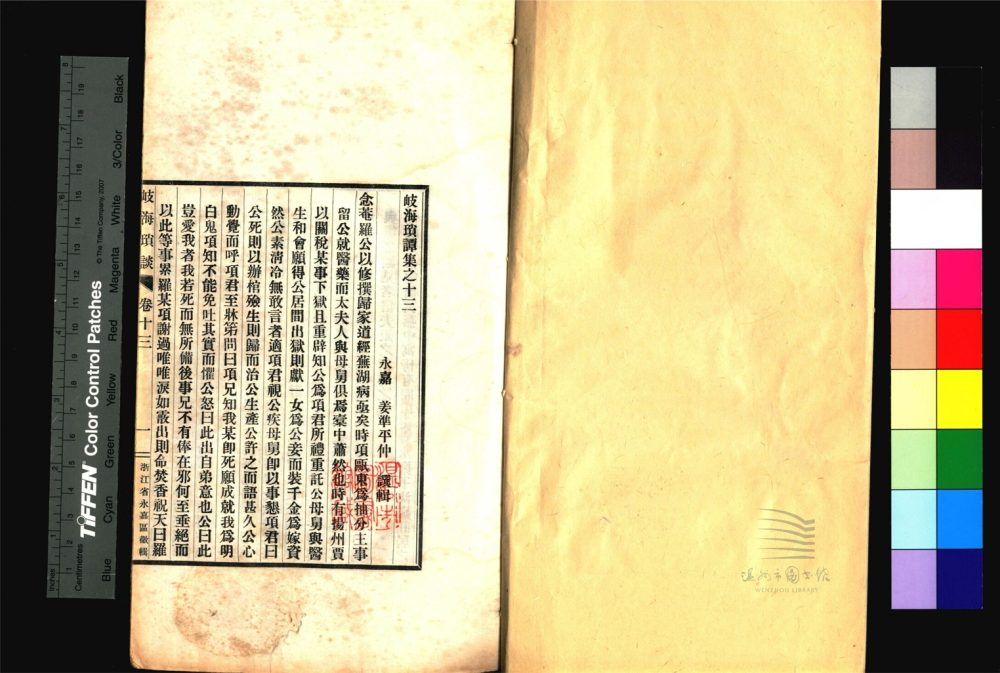 岐海瑣譚集之十三
永嘉 姜準平仲 譔輯
念菴羅公以修撰歸家道經蕪湖病亟矣時項甌東為抽分主事
留公就醫藥而太夫人與母舅俱焉橐中蕭然也時有揚州賈
以關稅某事下獄且重辟知公為項君所禮重託公母舅與醫
生和會願得公居間出獄則獻一女為公妾而裝千金為嫁資
然公素清冷無敢言者適項君視公疾母舅即以事懇項君曰
公死則以辦棺殮生則歸而治公生產公許之而語甚久公心
動覺而呼項君至牀笫問曰項兄知我某即死願成就我為明
白鬼項知不能免吐其實而懼公怒曰此出自弟意也公曰此
豈愛我者我若死而無所備後事兄不有俸在邪何至垂絕而
以此等事累羅某項謝過唯唯淚如霰出則命焚香祝天曰羅
岐海瑣談 卷十三
一
浙江省永嘉區徵輯
Inches
Centimetres
TIFFEN Color Control Patches
© The Tiffen Company, 2007
Blue Cyan Green Yellow Red Magenta White 3/Color Black
溫州市圖書館
WENZHOU LIBRARY